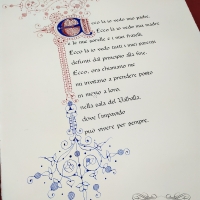 Ecco là io vedo mio padre,
Ecco là io vedo mia madre
e le mie sorelle e i miei fratelli.
Ecco là io vedo tutti i miei parenti
defunti dal principio alla fine.
Ecco, ora chiamano me
mi invitano a prendere posto
in mezzo a loro.
nella sala del Valhalla,
dove l'impavido
può vivere per sempre.